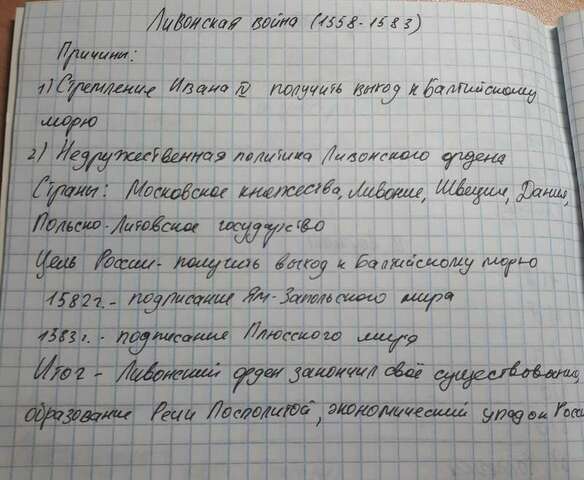 Ливонская война (1558-1583)
Причины:
1) Стремление Ивана IV получить выход к Балтийскому
морю
2) Недружественная политика Ливонского ордена
Страны: Московское княжества, Ливония, Швеция, Дания,
Польско-Литовское государство
Цель России - получить выход к Балтийскому морю
1582г. - подписание Ям-Запольского мира
1583г. - подписание Плюсского мира
Итог - Ливонский орден закончил своё существование,
образование Речи Посполитой, экономический упадок Росси